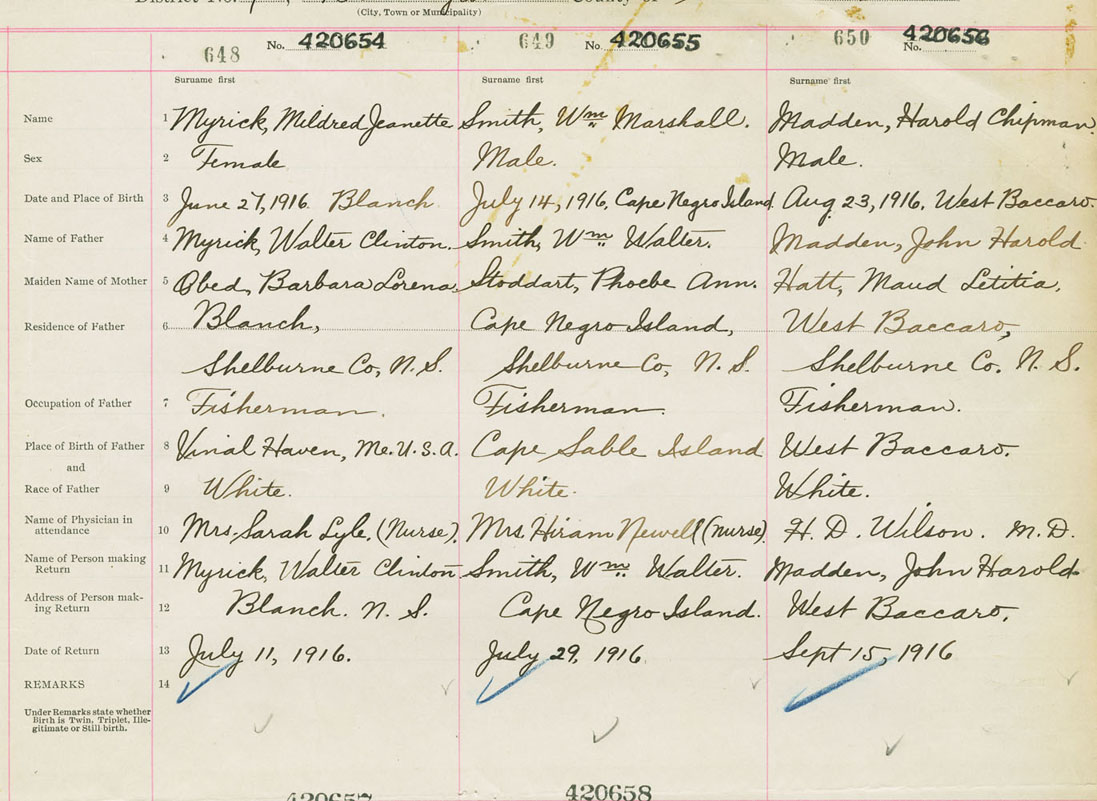 (City, Town or Municipality)
648 No. 420654 649 No. 420655 650 No. 420656
Surname first Surname first Surname first
Name 1 Myrick, Mildred Jeanette Smith, Wm Marshall. Madden, Harold Chipman.
Sex 2 Female Male. Male.
Date and Place of Birth 3 June 27, 1916 Blanch July 14, 1916, Cape Negro Island Aug 23, 1916. West Baccaro.
Name of Father 4 Myrick, Walter Clinton. Smith, Wm Walter. Madden, John Harold
Maiden Name of Mother 5 Obed, Barbara Lorena, Stoddart, Phoebe Ann. Hatt, Maud Letitia,
Residence of Father 6 Blanch, Cape Negro Island, West Baccaro,
Shelburne Co, N. S. Shelburne Co, N. S. Shelburne Co. N. S.
Occupation of Father 7 Fisherman. Fisherman. Fisherman.
Place of Birth of Father 8 Vinal Haven, Me. U.S.A. Cape Sable Island West Baccaro.
and
Race of Father 9 White. White. White.
Name of Physician in attendance 10 Mrs. Sarah Lyle. (Nurse). Mrs. Hiram Newell (Nurse). H. D. Wilson. M. D.
Name of Person making Return 11 Myrick, Walter Clinton Smith, Wm Walter. Madden, John Harold
Address of Person mak-
ing Return 12 Blanch. N. S. Cape Negro Island. West Baccaro.
Date of Return 13 July 11, 1916. July 29, 1916 Sept 15, 1916
REMARKS 14
Under Remarks state whether
Birth is Twin, Triplet, Ille-
gitimate or Still-birth.
420657 420658